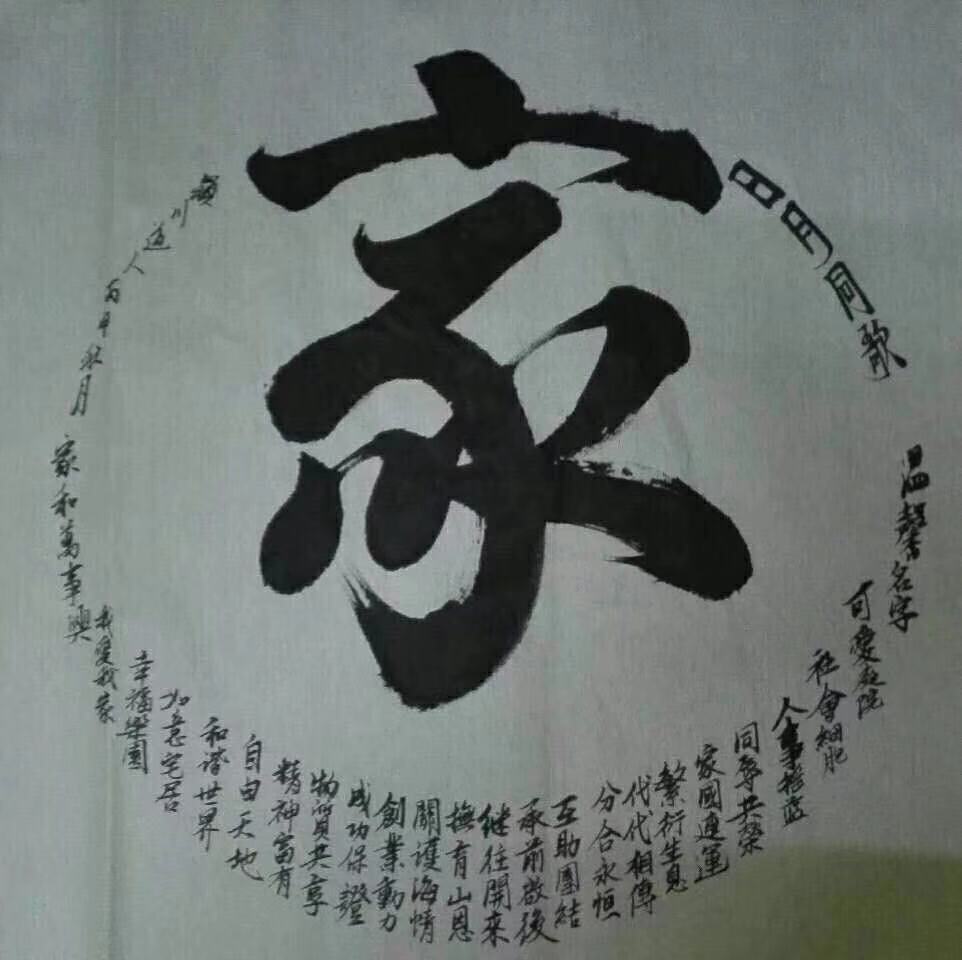 家
日月同歌
温馨名字
可愛庭院
社會細胞
人事搖籃
同辱共榮
家國連運
繁衍生息
代代相傳
分合永恒
互助團結
承前啟後
継往開來
撫育山恩
關護海情
創業動力
成功保證
物質共享
精神富有
自由天地
和谐世界
如意宅居
幸福樂園
我愛我家
家和萬事興
川道人丙申秋月